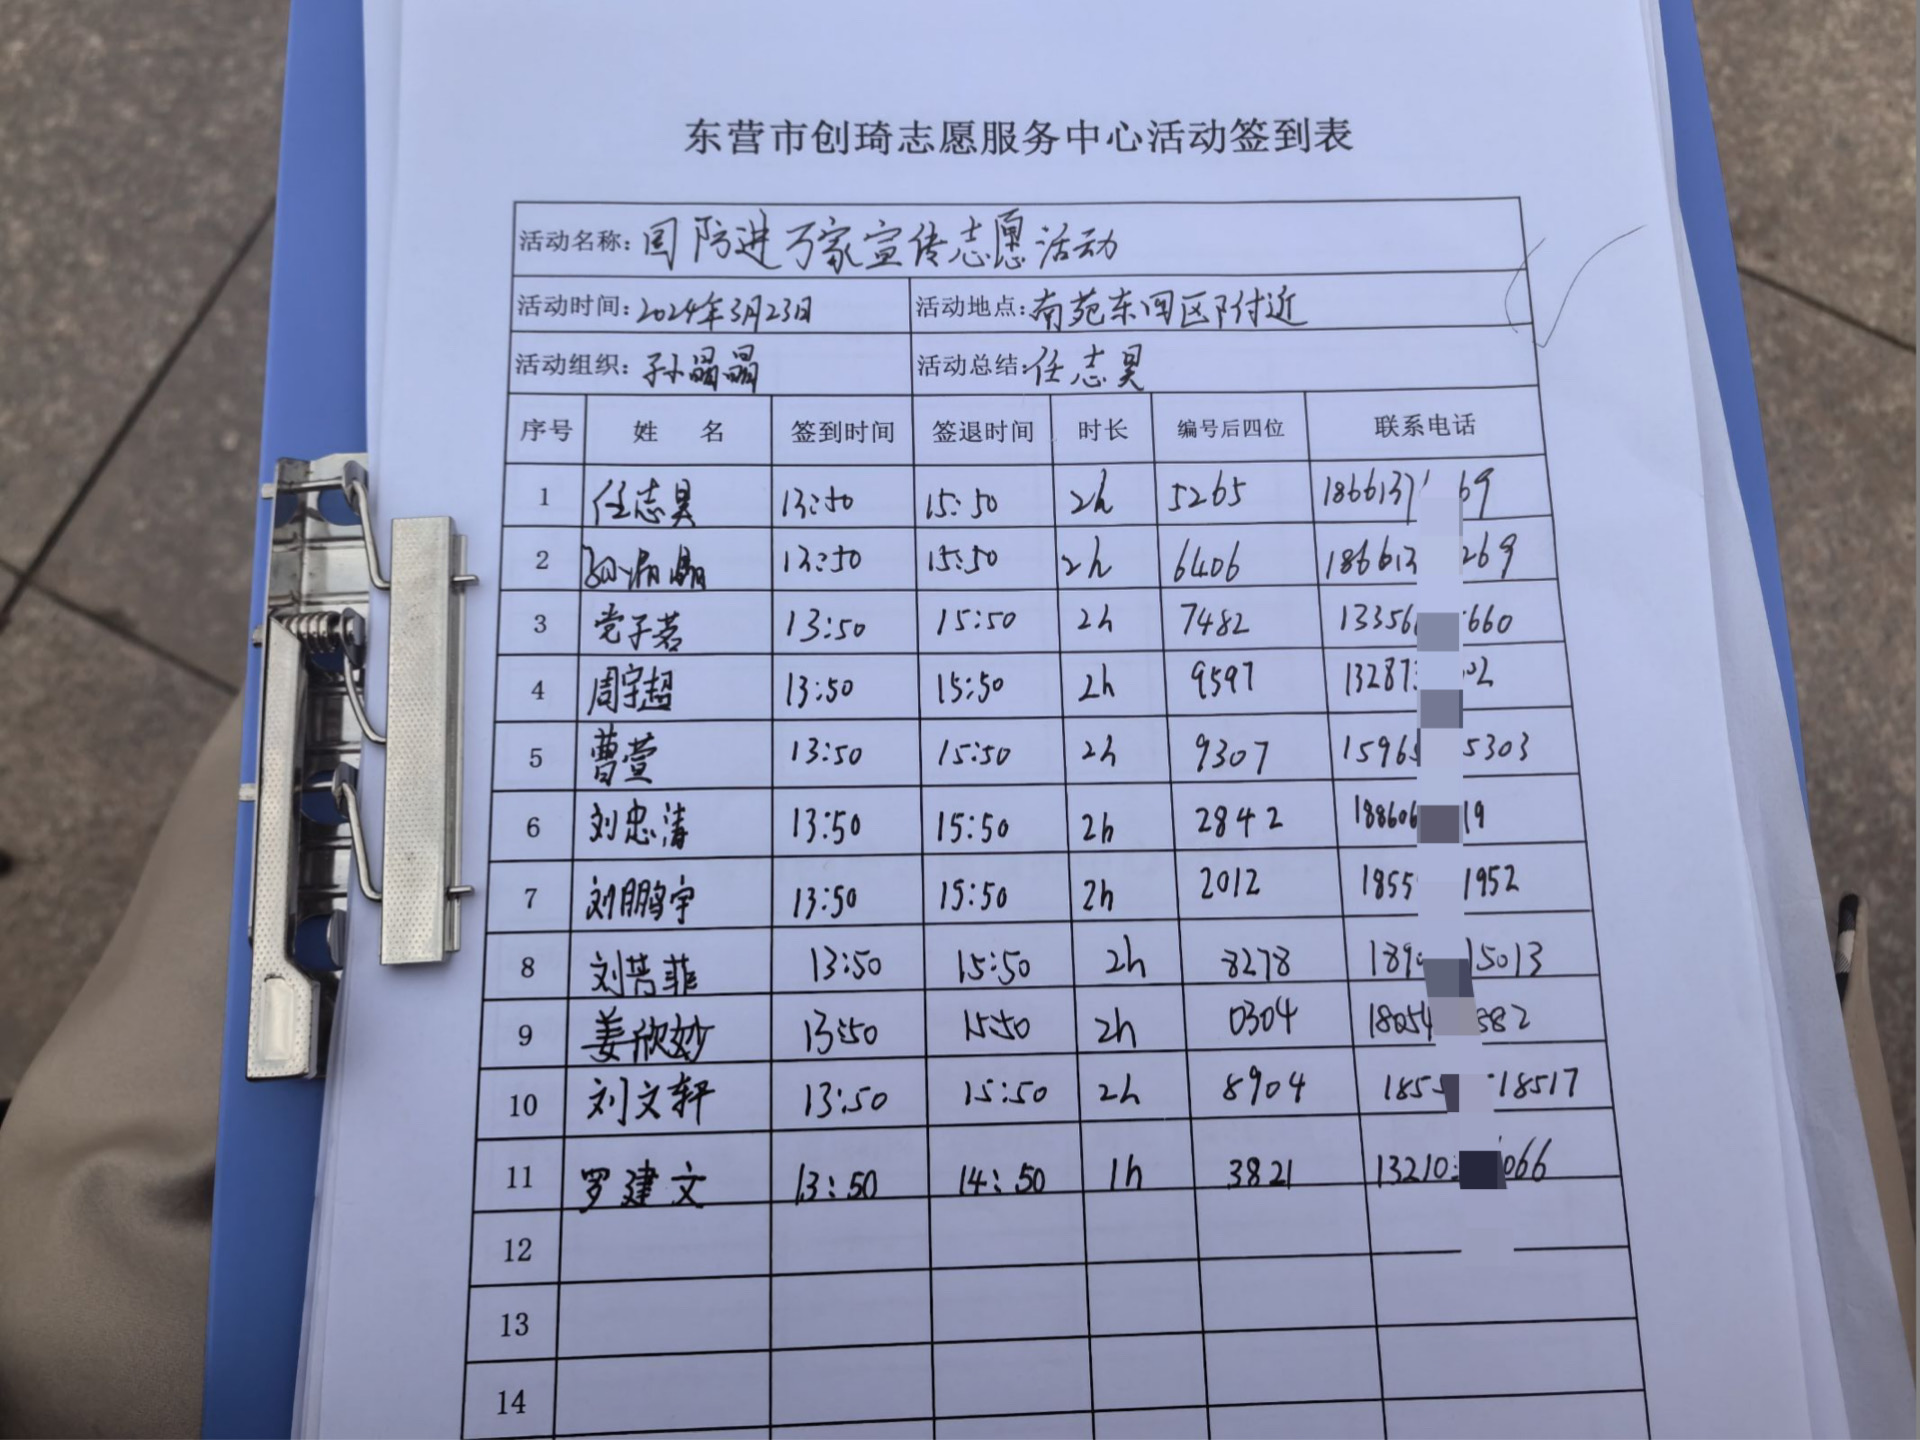 东营市创琦志愿服务中心活动签到表
活动名称：国防进万家宣传志愿活动
活动时间：2024年3月23日 活动地点：南苑东园区附近
活动组织：孙晶晶 活动总结：任志昊
序号 姓 名 签到时间 签退时间 时长 编号后四位 联系电话
1 任志昊 13:50 15:50 2h 5265 1866137 69
2 孙晶晶 13:50 15:50 2h 6406 186613 269
3 党子茗 13:50 15:50 2h 7482 13356 660
4 周宇超 13:50 15:50 2h 9597 13287 02
5 曹萱 13:50 15:50 2h 9307 1596 5303
6 刘忠涛 13:50 15:50 2h 2842 18860 19
7 刘鹏宇 13:50 15:50 2h 2012 1855 1952
8 刘芳菲 13:50 15:50 2h 8278 189 15013
9 姜欣妙 13:50 15:50 2h 0304 18054 882
10 刘文轩 13:50 15:50 2h 8904 185 18517
11 罗建文 13:50 14:50 1h 3821 13210 066
12
13
14